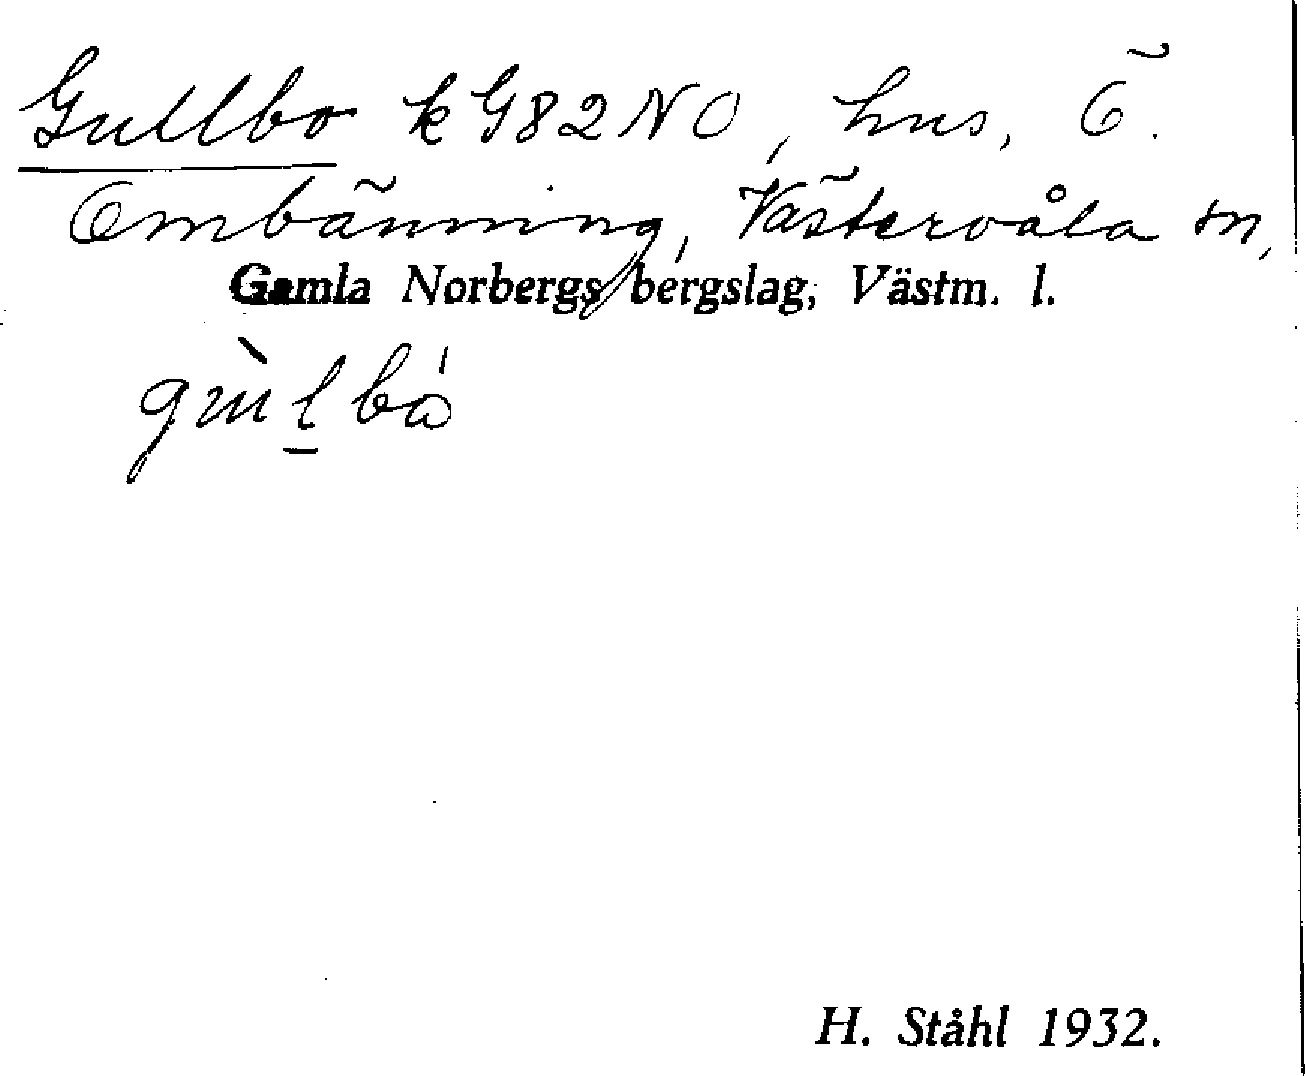 Gullbo k G82NO, hus, Ö.
Ombänning, Västervåla sn,
Gamla Norbergs bergslag, Västm. l.
gùlbó
H. Ståhl 1932.